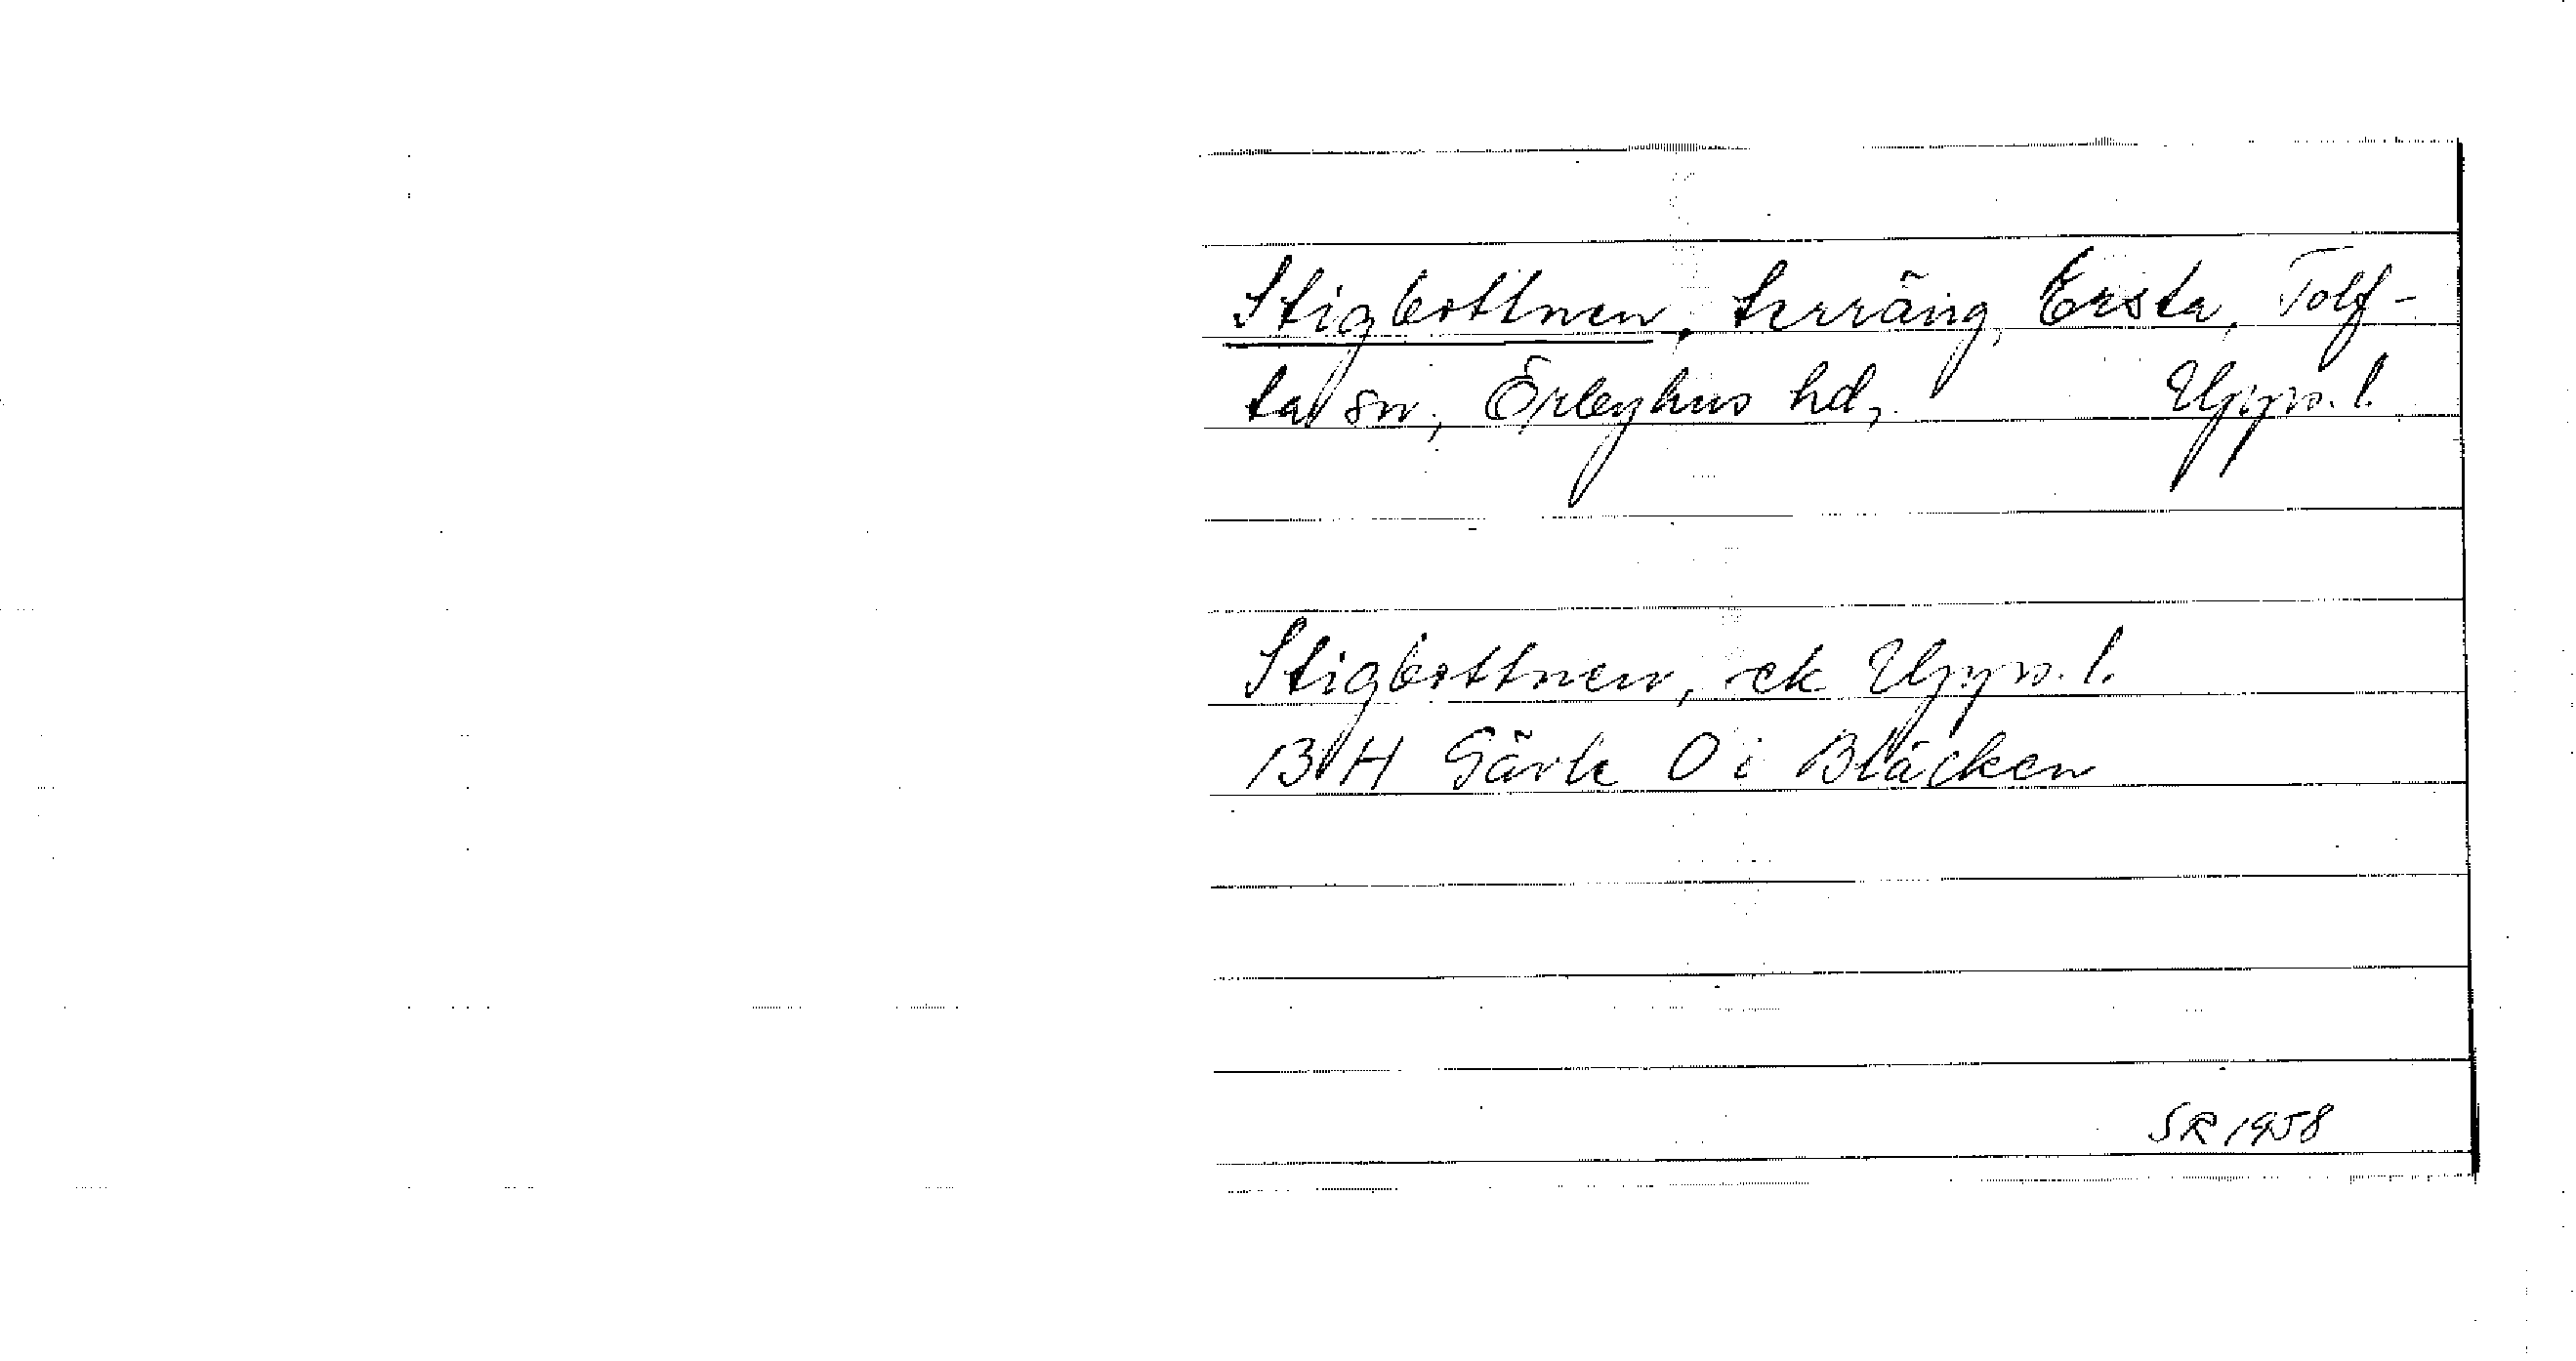 Stigbottnen, terräng, Ersta, Tolf-
ta sn, Örbyhus hd, Upps. l.
Stigbottnen, ek Upps. l.
13 H Gävle O i Bläcken
SR 1958